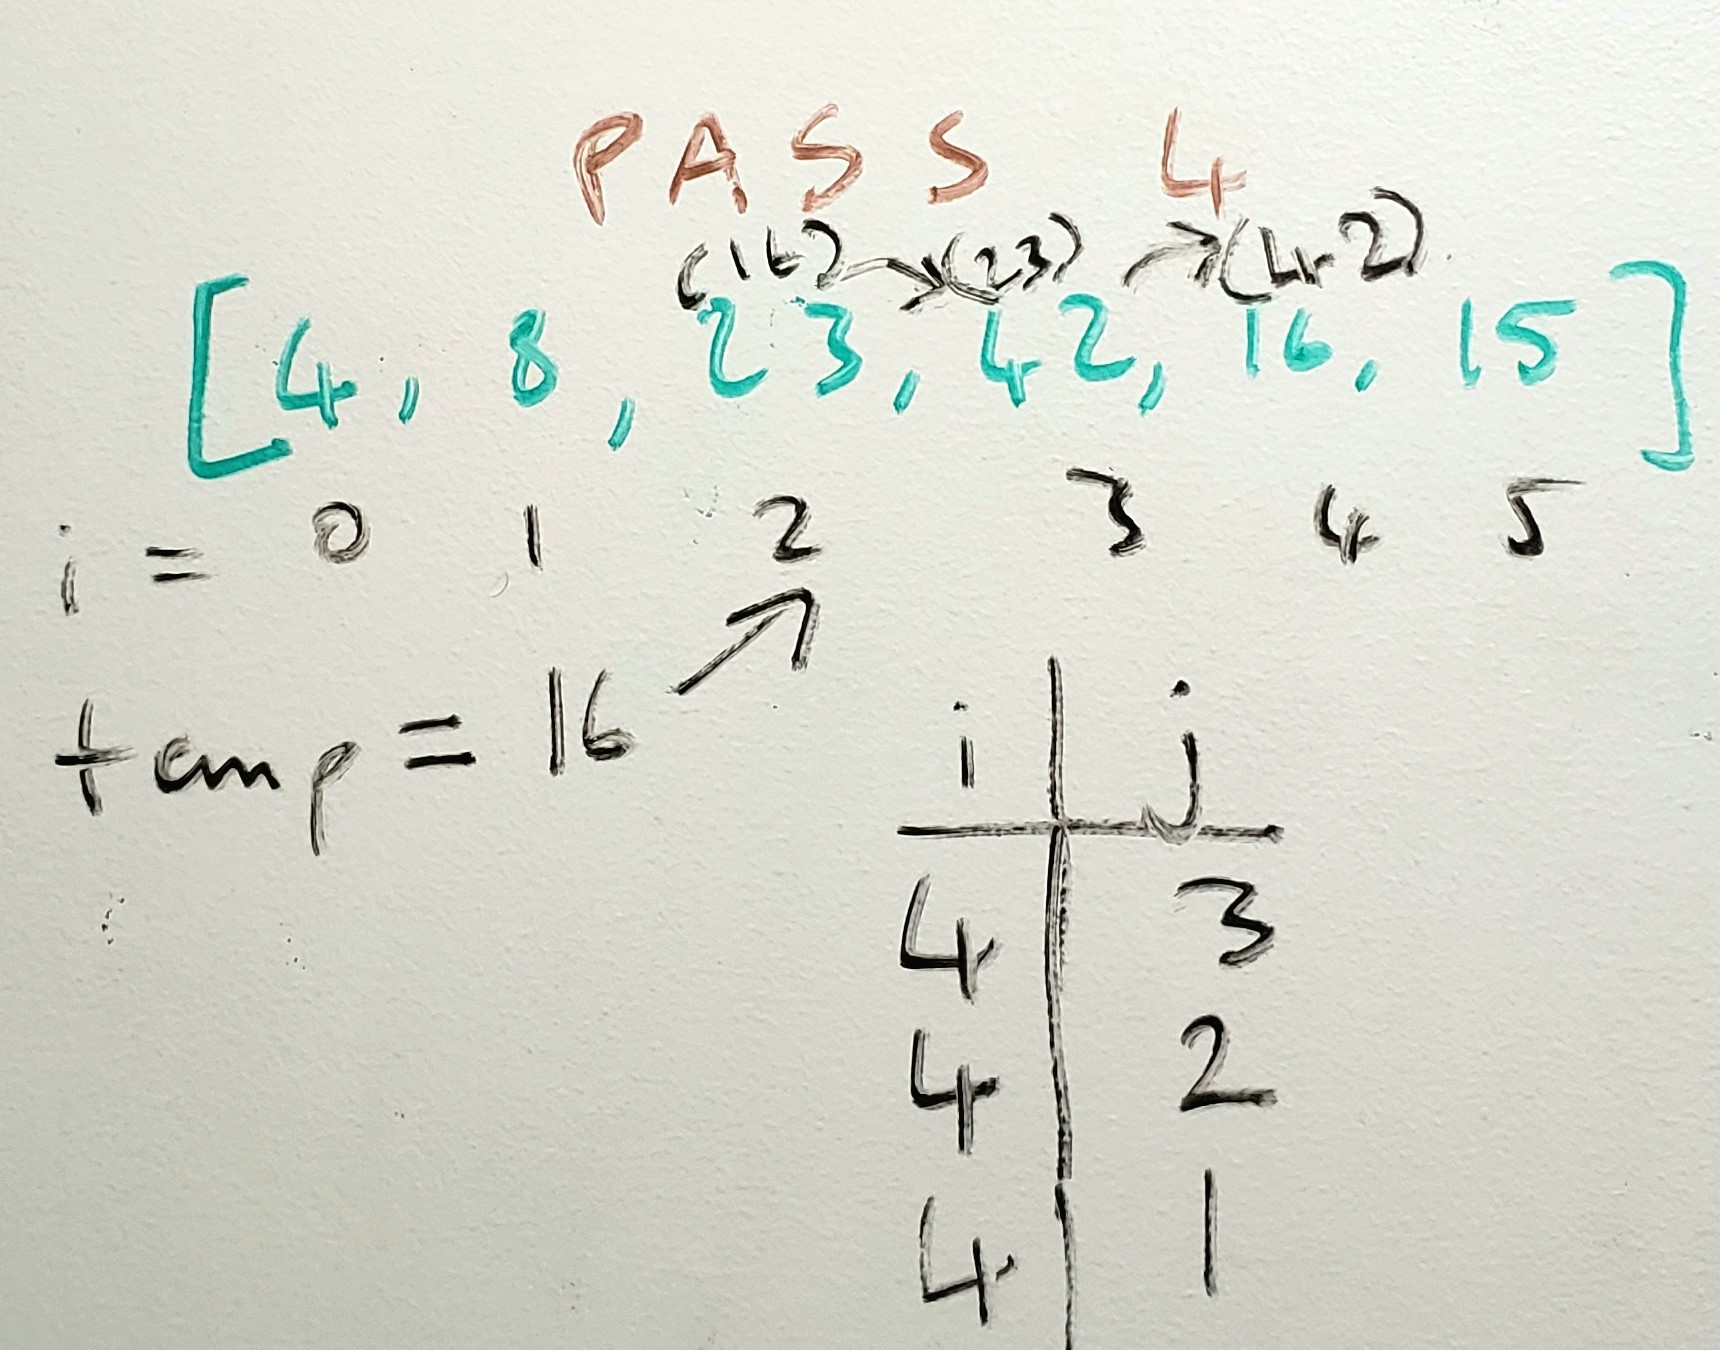 PASS 4
(16) → (23) → (42)
[4, 8, 23, 42, 16, 15]
i = 0 1 2 3 4 5
temp = 16
i j
4 3
4 2
4 1